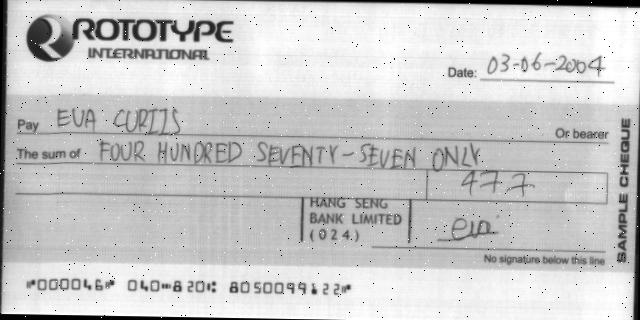 ROTOTYPE
INTERNATIONAL
Date: 03-06-2004
Pay EVA CURTIS
Or bearer
The sum of FOUR HUNDRED SEVENTY-SEVEN ONLY
477
HANG SENG
BANK LIMITED
(024)
eva
No signature below this line
SAMPLE CHEQUE
⑈000046⑈ 040⑉820⑆ 8050099122⑈